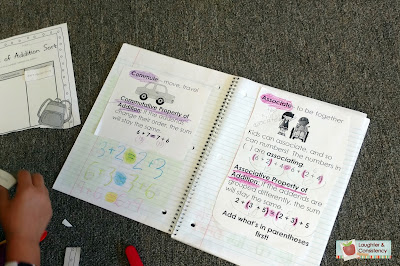 of Addition Sort
Commute - move, travel
Commutative Property of
Addition: If the addends
change their order, the sum
will stay the same.
6 + 7 = 7 + 6
3 + 2 = 2 + 3
Associate - to be together
Kids can associate, and so
can numbers! The numbers in
( ) are associating.
Associative Property of
Addition: If the addends are
grouped differently, the sum
will stay the same.
2 + (3 + 5) = (2 + 3) + 5
Add what's in parentheses
first!
Laughter &
Consistency